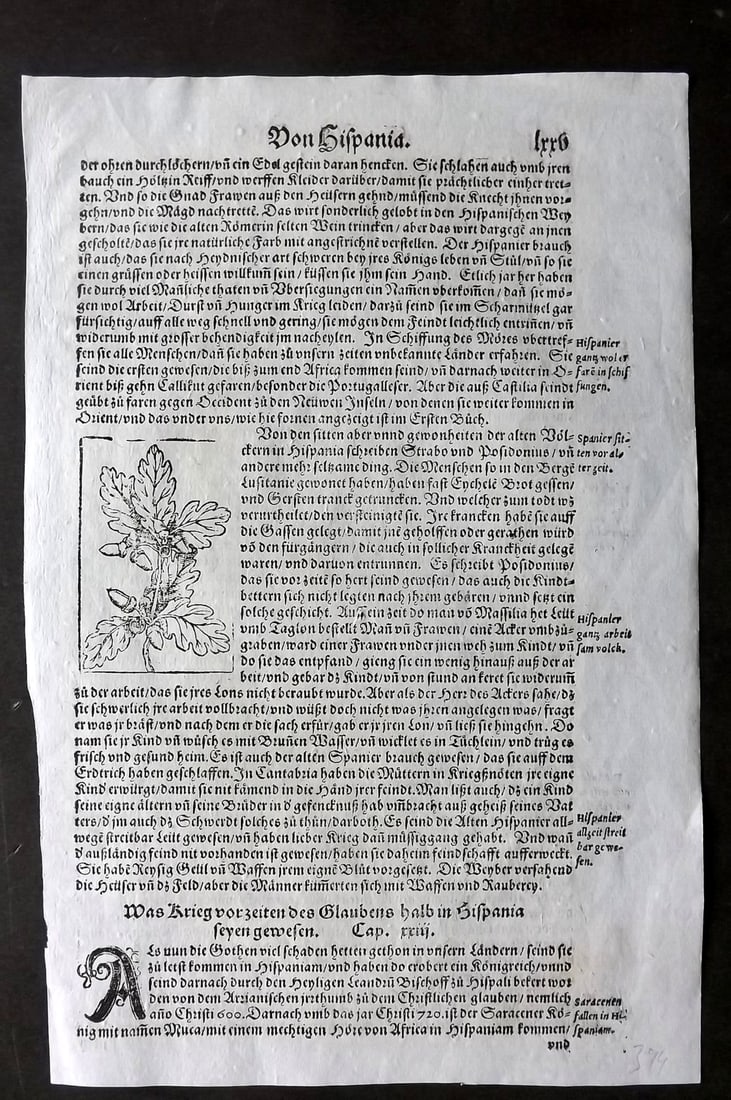 Von Hispania. lxxv
der ohren durchlöchern/vñ ein Edel gestein daran hencken. Sie schlahen auch vmb jren
bauch ein Höltzin Reiff/vnd werffen Kleider darüber/damit sie prächtlicher einher tret-
ten. Vnd so die Gnad Frawen auß den Heüsern gehnd/müssend die Knecht jhnen vor-
gehn/vnd die Mägd nachtrettē. Das wirt sonderlich gelobt in den Hispanischen Wey
bern/das sie wie die alten Römerin selten Wein trincken/aber das wirt dargegē an jnen
gescholtē/das sie jre natürliche Farb mit angestrichnē verstellen. Der Hispanier brauch
ist auch/das sie nach Heydnischer art schweren bey jres Königs leben vñ Stůl/vñ so sie
einen grüssen oder heissen willkum̃ sein/küssen sie jhm sein Hand. Etlich jar her haben
sie durch viel Mañliche thaten vñ Vbersiegungen ein Nam̃en vberkom̃en/dañ sie mö-
gen wol Arbeit/Durst vñ Hunger im Krieg leiden/darzů seind sie im Scharmützel gar
fürsichtig/auff alle weg schnell vnd gering/sie mögen dem Feindt leichtlich entriñen/vñ
widerumb mit grosser behendigkeit jm nacheylen. In Schiffung des Möres vbertref-
fen sie alle Menschen/dañ sie haben zů vnsern zeiten vnbekannte Länder erfahren. Sie
seind die ersten gewesen/die biß zum end Africa kommen seind/vñ darnach weiter in O-
rient biß gehn Callikut gefaren/besonder die Portugalleser. Aber die auß Castilia seindt
geübt zů faren gegen Occident zů den Neüwen Inseln/von denen sie weiter kommen in
Orient/vnd das vnder vns/wie hie fornen angezeigt ist im Ersten Bůch.
Hispanier
gantz wol er
farē in schif
fungen.
Von den sitten aber vnnd gewonheiten der alten Völ-
ckern in Hispania schreiben Strabo vnd Posidonius/vñ
andere mehr seltzame ding. Die Menschen so in den Bergē
Lusitanie gewonet haben/haben fast Eychelē Brot gessen/
vnd Gersten tranck getruncken. Vnd welcher zum todt wz
verurtheilet/den versteinigtē sie. Ire krancken habē sie auff
die Gassen gelegt/damit jnē geholffen oder gerathen würd
vō den fürgängern/die auch in sollicher Kranckheit gelegē
waren/vnd daruon entrunnen. Es schreibt Posidonius/
das sie vor zeitē so hert seind gewesen/das auch die Kindt-
bettern sich nicht legten nach jhrem gebären/vnnd setzt ein
solche geschicht. Auff ein zeit do man vō Massilia het Leüt
vmb Taglon bestellt Mañ vñ Frawen/einē Acker vmb zů-
graben/ward einer Frawen vnder jnen weh zum Kindt/vñ
do sie das entpfand/gieng sie ein wenig hinauß auß der ar
beit/vnd gebar dz Kindt/vñ von stund an keret sie widerum̃
zů der arbeit/das sie jres Lons nicht beraubt wurde. Aber als der Herr des Ackers sahe/dz
sie schwerlich jre arbeit vollbracht/vnd wüßt doch nicht was jhren angelegen was/fragt
er was jr bräst/vnd nach dem er die sach erfůr/gab er jr jren Lon/vñ ließ sie hingehn. Do
nam sie jr Kind vñ wůsch es mit Bruñen Wasser/vñ wicklet es in Tüchlein/vnd trůg es
frisch vnd gesund heim. Es ist auch der alten Spanier brauch gewesen/das sie auff dem
Erdtrich haben geschlaffen. In Cantabria haben die Müttern in Kriegßnöten jre eigne
Kind erwürgt/damit sie nit kämend in die Händ jrer feindt. Man lißt auch/dz ein Kind
seine eigne ältern vñ seine Brüder in d' gefencknuß hab vm̃bracht auß geheiß seines Vat
ters/d' jm auch dz Schwerdt solches zů thůn/darboth. Es seind die Alten Hispanier all-
wegē streitbar Leüt gewesen/vñ haben lieber Krieg dañ müssiggang gehabt. Vnd wañ
d' außländig feind nit vorhanden ist gewesen/haben sie daheim feindschafft aufferweckt.
Sie habē Reysig Geül vñ Waffen jrem eignē Blůt vorgesetzt. Die Weyber versahend
die Heüser vñ dz Feld/aber die Männer küm̃erten sich mit Waffen vnd Rauberey.
Spanier sit-
ten vor al-
ter zeit.
Hispanier
gantz arbeit
sam volck.
Hispanier
allzeit streit
bar gewe-
sen.
Was Krieg vorzeiten des Glaubens halb in Hispania
seyen gewesen. Cap. xxiij.
Als nun die Gothen viel schaden hetten gethon in vnsern Ländern/seind sie
zů letst kommen in Hispaniam/vnd haben do erobert ein Königreich/vnnd
seind darnach durch den Heyligen Leandrū Bischoff zů Hispali bekert wor
den von dem Arrianischen jrrthumb zů dem Christlichen glauben/nemlich
año Christi 600. Darnach vmb das jar Christi 720. ist der Saracener Kö-
nig mit nam̃en Muca/mit einem mechtigen Höre von Africa in Hispaniam kommen/
Saracenen
fallen in Hi-
spaniam.
vnd
394